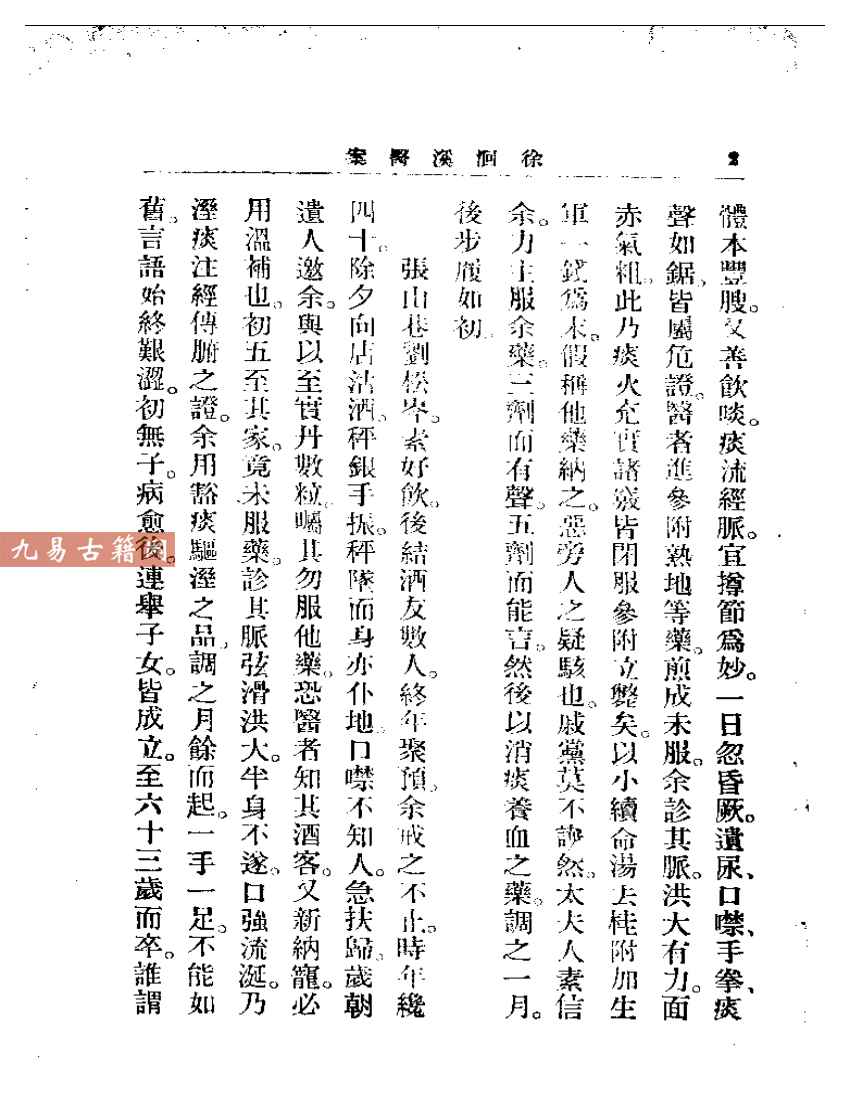 徐洄溪醫案
2
體本豐腴。又善飲啖。痰流經脈。宜撙節爲妙。一日忽昏厥。遺尿、口噤、手拳、痰
聲如鋸。皆屬危證。醫者進參附熟地等藥。煎成未服。余診其脈。洪大有力。面
赤氣粗。此乃痰火充實諸竅皆閉服參附立斃矣。以小續命湯去桂附加生
軍一錢爲末。假稱他藥納之。惡旁人之疑駭也。戚黨莫不譁然。太夫人素信
余。力主服余藥。三劑而有聲。五劑而能言。然後以消痰養血之藥。調之一月。
後步履如初。
張由巷劉松岑。素好飲。後結酒友數人。終年聚預。余戒之不止。時年纔
四十。除夕向店沽酒。秤銀手振。秤墜而身亦仆地。口噤不知人。急扶歸。歲朝
遺人邀余。與以至寶丹數粒。囑其勿服他藥。恐醫者知其酒客。又新納寵。必
用溫補也。初五至其家。竟未服藥。診其脈弦滑洪大。半身不遂。口強流涎。乃
溼痰注經傳腑之證。余用豁痰驅溼之品。調之月餘而起。一手一足。不能如
舊。言語始終艱澀。初無子。病愈後。連舉子女。皆成立。至六十三歲而卒。誰謂
九易古籍網